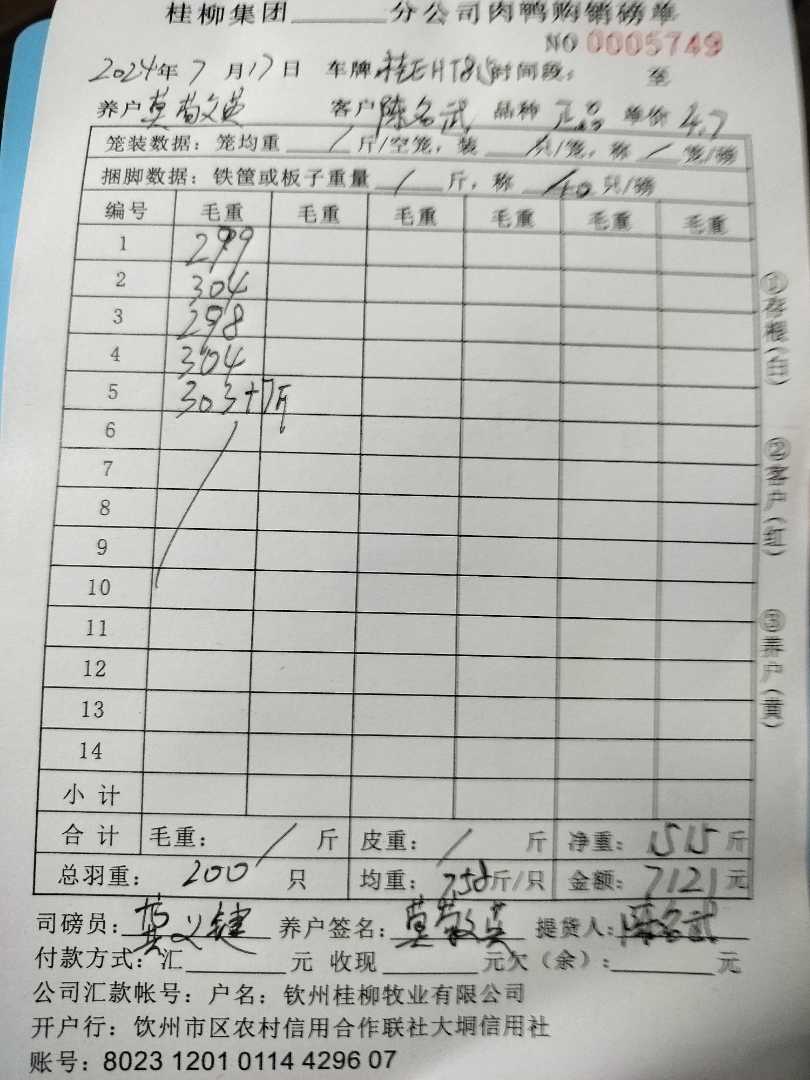 桂柳集团______分公司肉鸭购销磅单
NO 0005749
2024年7月17日 车牌 时间段: 至
养户 莫敬英 客户 陈名武 品种 正品 单价 4.7
笼装数据:笼均重 / 斤/空笼,装 只/笼,称 / 笼/磅
捆脚数据:铁筐或板子重量 / 斤,称 40 只/磅
编号 毛重 毛重 毛重 毛重 毛重 毛重
1 299
2 304
3 298
4 304
5 303+7斤
6
7
8
9
10
11
12
13
14
小计
合计 毛重: / 斤 皮重: / 斤 净重: 1515 斤
总羽重: 200 只 均重: 7.58 斤/只 金额: 7121 元
司磅员: 莫义键 养户签名: 莫敬英 提货人: 陈名武
付款方式:汇______元 收现______元欠(余):______元
公司汇款帐号:户名:钦州桂柳牧业有限公司
开户行:饮州市区农村信用合作联社大垌信用社
账号:8023 1201 0114 4296 07
①存根(白)
②客户(红)
③养户(黄)